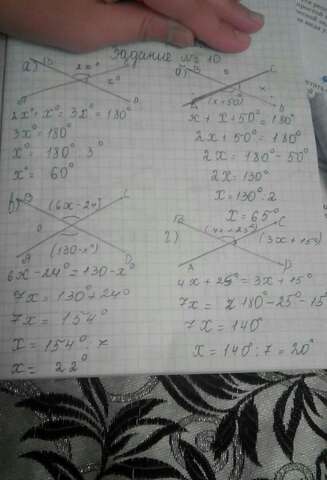 Задание № 10
а) B 2x° C
x°
A D
2x° + x° = 3x° = 180°
3x° = 180°
x° = 180° : 3°
x° = 60°
б) B O C
x
A (x+50°) D
x + x + 50° = 180°
2x + 50° = 180°
2x = 180° - 50°
2x = 130°
x = 130° : 2
x = 65°
в) B (6x-24°) C
O
A (130-x°) D
6x - 24° = 130 - x°
7x = 130° + 24°
7x = 154°
x = 154° : 7
x = 22°
г) B (4x+25°) C
(3x+15°)
A D
4x + 25° = 3x + 15°
7x = 180° - 25° - 15°
7x = 140°
x = 140° : 7 = 20°